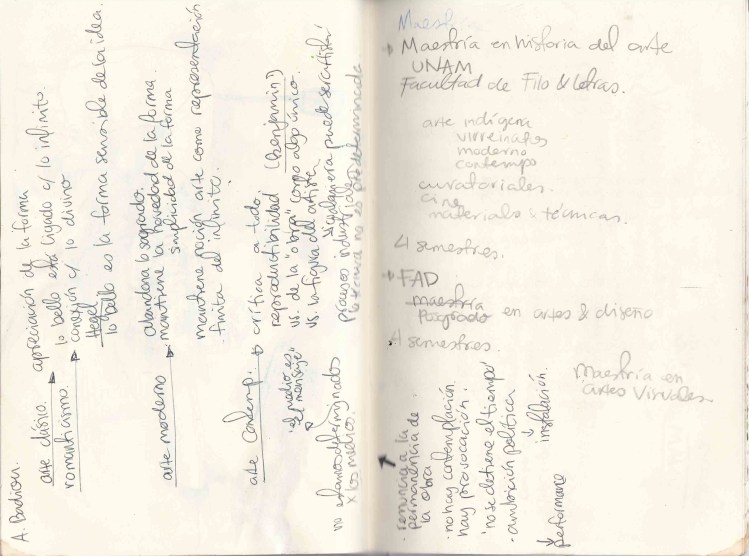 A. Badiou.
arte clásico. → apreciación de la forma
lo bello está ligado c/ lo infinito.
romanticismo. → conexión c/ lo divino
Hegel
lo bello es la forma sensible de la idea.
arte moderno → abandona lo sagrado.
mantiene la novedad de la forma.
simplicidad de la forma
mantiene noción arte como representación
finita del infinito.
arte contemp. → crítica a todo.
reproductibilidad (Benjamin)
"el medio es el mensaje"
vs. de la "obra" como algo único.
vs. la figura del artista.
↳ cualquiera puede ser artista
procesos industriales
la técnica no es predeterminada
no estamos determinados
x los medios.
· renuncia a la
permanencia de
la obra
· no hay contemplación.
hay provocación.
· no se detiene el tiempo
· ambición política
↓ ↓
performance instalación.
Maestr
→ Maestría en historia del arte
UNAM
Facultad de Filo & Letras.
arte indígena
virreinales
moderno
contempo
curatoriales.
cine
materiales i técnicas.
4 semestres.
→ FAD
maestría
Posgrado en artes & diseño
4 semestres.
Maestría en
artes visuales